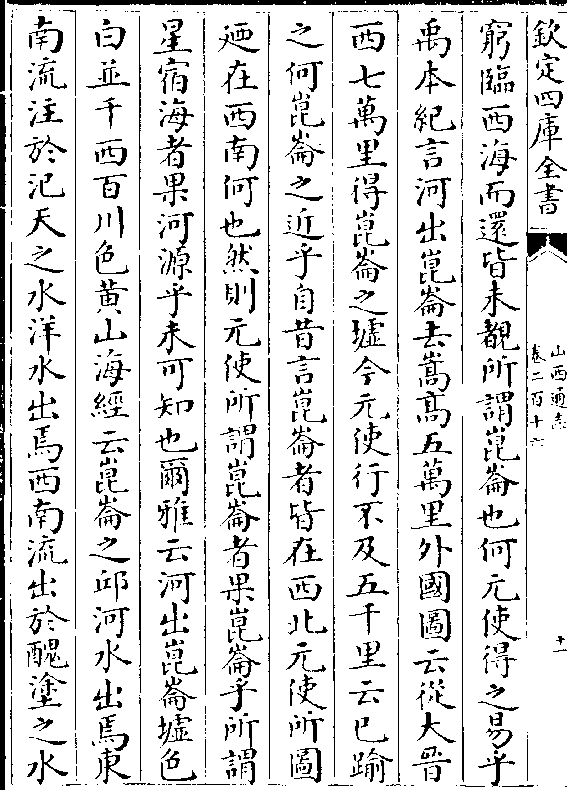 欽定四庫全書
山西通志
卷二百十六
十一
窮臨西海而還皆未覩所謂崑崙也何元使得之易乎
禹本紀言河出崑崙去嵩高五萬里外國圖云從大晉
西七萬里得崑崙之墟今元使行不及五千里云已踰
之何崑崙之近乎自昔言崑崙者皆在西北元使所圖
廼在西南何也然則元使所謂崑崙者果崑崙乎所謂
星宿海者果河源乎未可知也爾雅云河出崑崙墟色
白並千西百川色黄山海經云崑崙之邱河水出焉東
南流注於汜天之水洋水出焉西南流出於醜塗之水